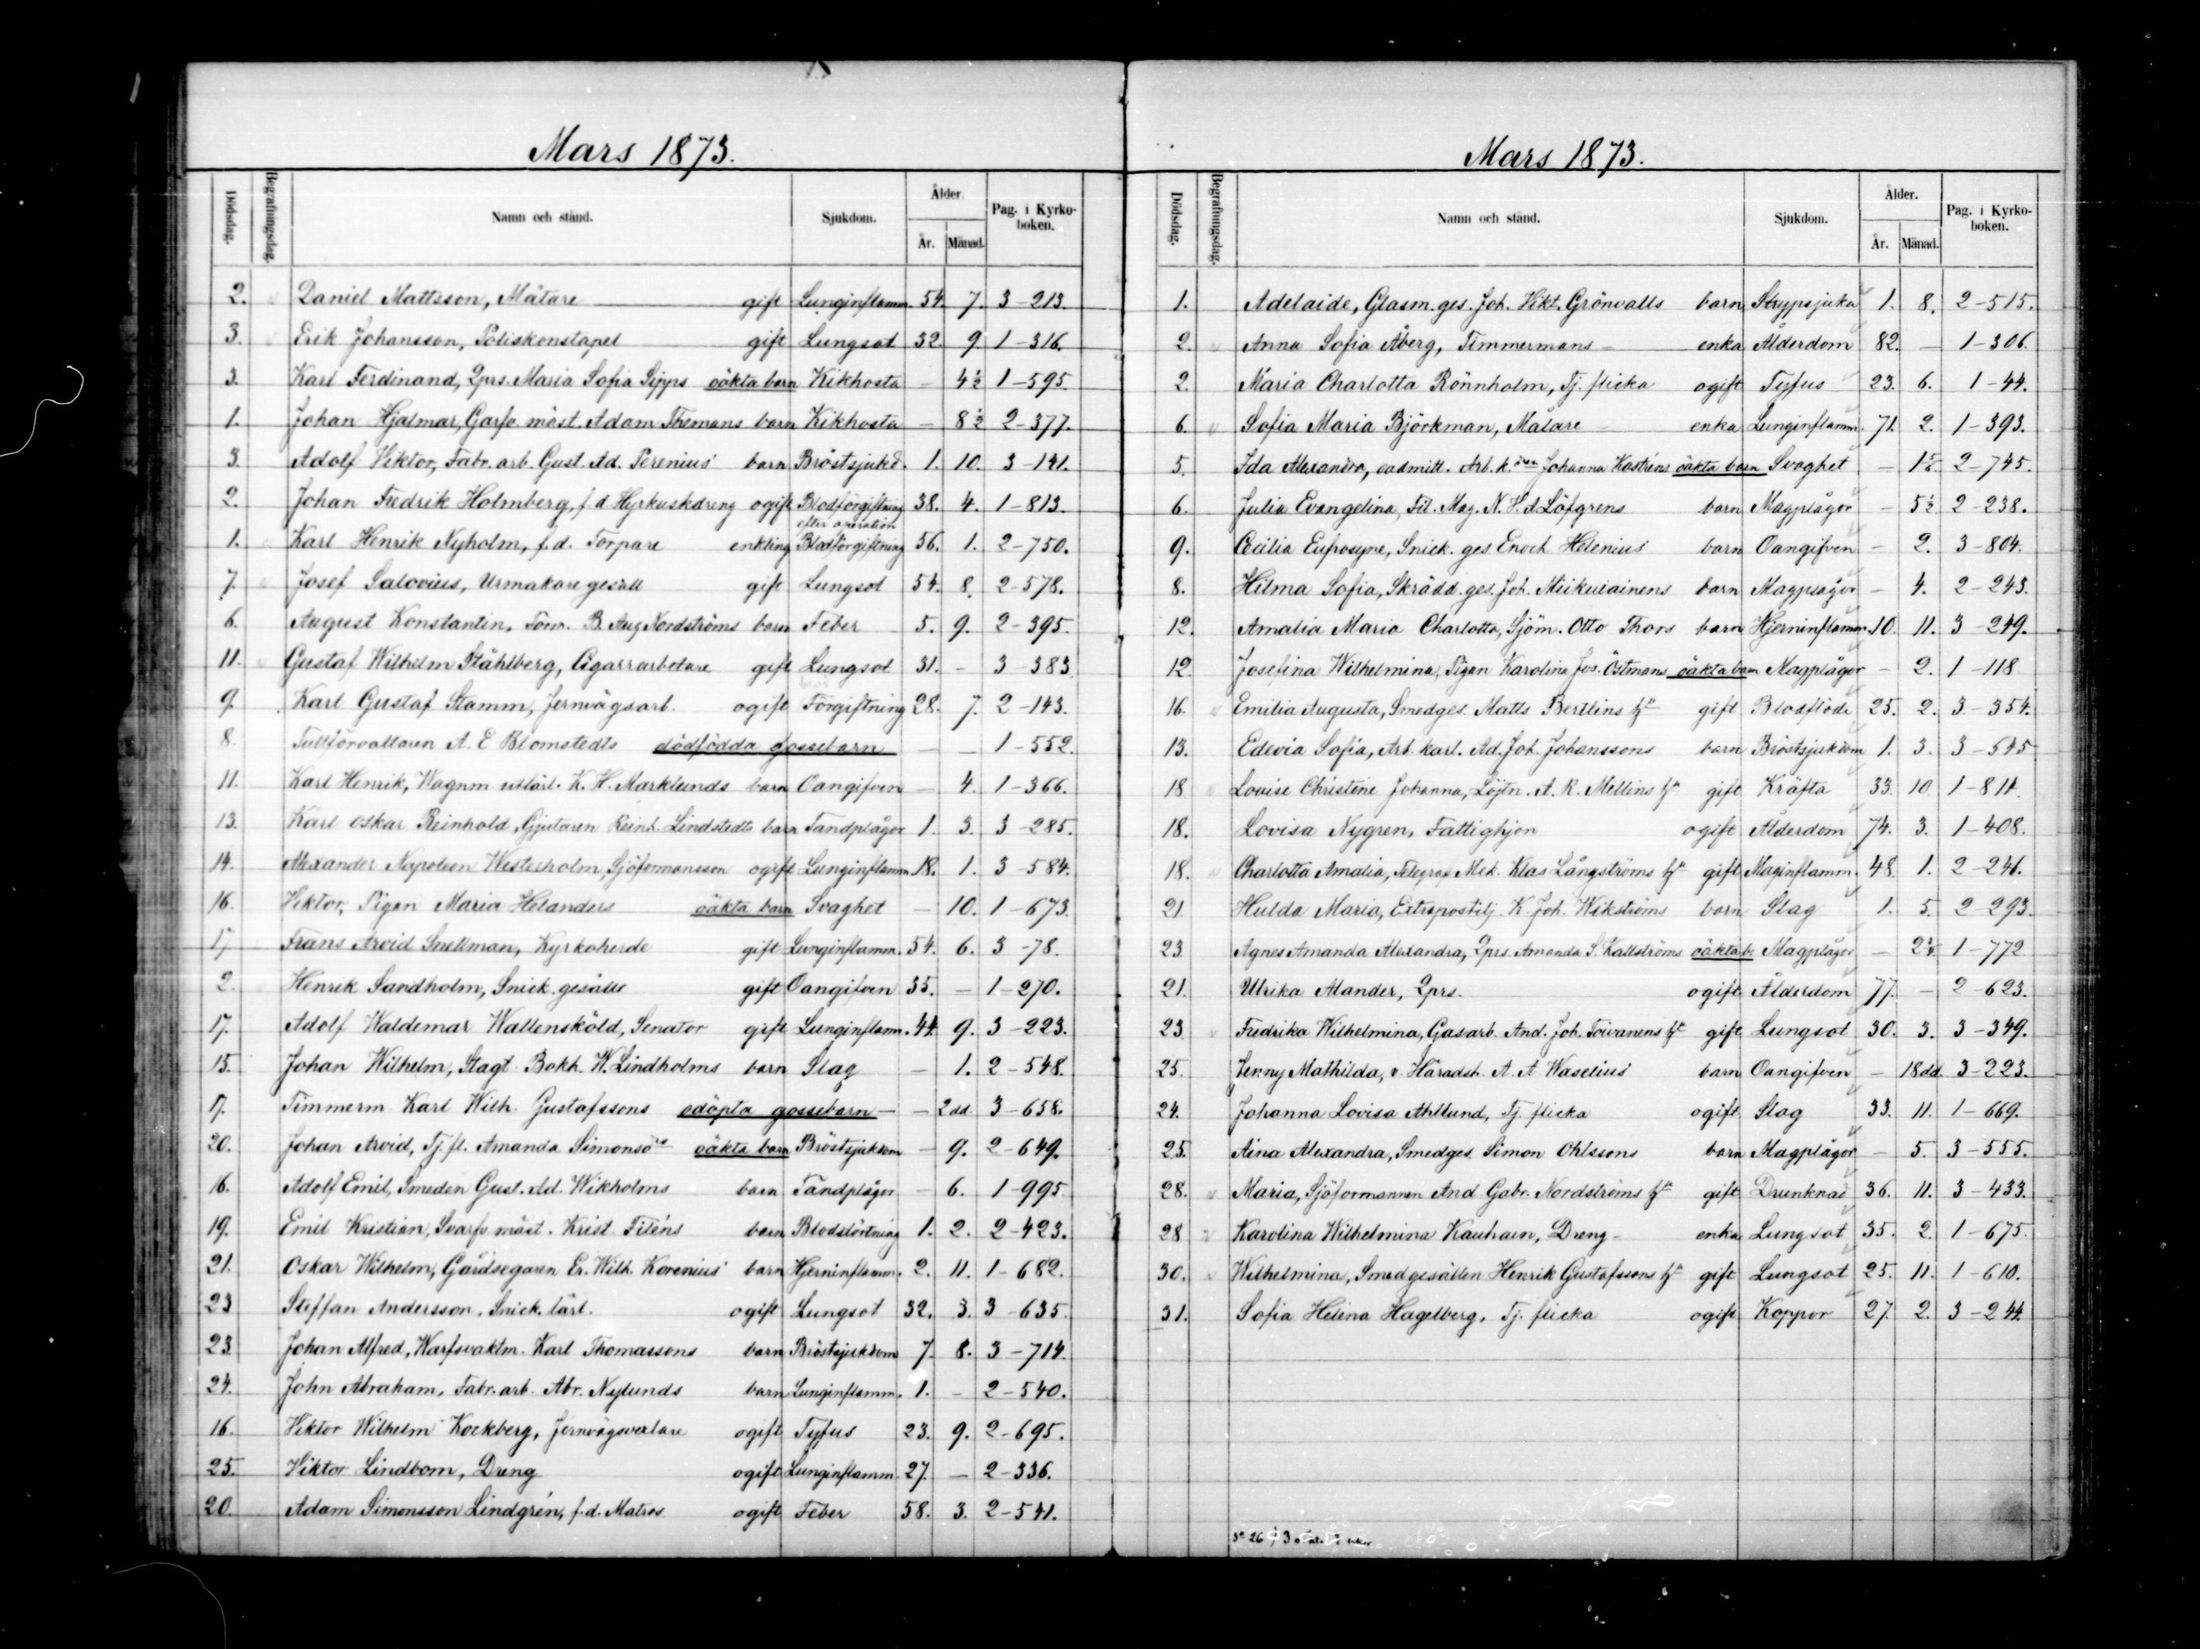 Mars 1873.
Dödsdag. Begrafningsdag. Namn och stånd. Sjukdom. Ålder. År. Månad. Pag. i Kyrkoboken.
2. Daniel Mattsson, Mätare gift Lunginflamm. 54. 7. 3-213.
3. Erik Johansson, Poliskonstapel gift Lungsot 32. 9. 1-316.
3. Karl Ferdinand, Qprs. Maria Sofia oäkta barn Kikhosta - 4½ 1-595.
1. Johan Hjalmar, Garfv. mäst. Adam Themans barn Kikhosta - 8½ 2-377.
3. Adolf Viktor, Fabr. arb. Gust. Ad. Perenius' barn Bröstsjukd. 1. 10. 3-141.
2. Johan Fredrik Holmberg, f.d. Hyrkuskdreng ogift Blodförgiftning efter operation 38. 4. 1-813.
1. Karl Henrik Nyholm, f.d. Torpare enkling Blodförgiftning 56. 1. 2-750.
7. Josef Salovius, Urmakaregesäll gift Lungsot 54. 8. 2-578.
6. August Konstantin, B. Aug Nordströms barn Feber 5. 9. 2-395.
11. Gustaf Wilhelm Ståhlberg, Cigarrarbetare gift Lungsot 31. - 3-383
9. Karl Gustaf Stamm, Jernvägsarb. ogift Förgiftning 28. 7. 2-143.
8. Tullförvaltaren A. E Blomstedts dödfödda gossebarn - - 1-552.
11. Karl Henrik, Wagnm utlärl. K. H. Marklunds barn Oangifven - 4. 1-366.
13. Karl Oskar Reinhold, Gjutaren Reinh. Lindstedts barn Tandplågor 1. 3. 3-285.
14. Alexander Napoleon Westerholm, Sjöformansson ogift Lunginflamm. 18. 1. 3-584.
16. Viktor, Pigan Maria Helanders oäkta barn Svaghet - 10. 1-673.
17. Frans Arvid Snellman, Kyrkoherde gift Lunginflamm. 54. 6. 3-78.
2. Henrik Sandholm, Snick. gesäll gift Oangifven 35. - 1-270.
17. Adolf Waldemar Wallensköld, Senator gift Lunginflam. 44. 9. 3-223.
15. Johan Wilhelm, Slagt. Bokh. W. Lindholms barn Slag - 1. 2-548.
17. Timmerm Karl Wilh. Gustafssons odöpta gossebarn - - 2 dd 3-658.
20. Johan Arvid, Tj. fl. Amanda oäkta barn Bröstsjukdom - 9. 2-649.
16. Adolf Emil, Smeden Gust. Ad. Wikholms barn Tandplågor - 6. 1-995.
19. Emil Kristian, Svarfv. mäst. Krist. Filéns barn Blodstörtning 1. 2. 2-423.
21. Oskar Wilhelm, Gårdsegaren Er. Wilh. Korenius' barn Hjerninflamm. 2. 11. 1-682.
23 Steffan Andersson, Snick. lärl. ogift Lungsot 32. 3. 3-635.
23. Johan Alfred, Warfsvaktm. Karl Thomassons barn Bröstsjukdom 7. 8. 3-714.
24. John Abraham, Fabr. arb. Abr. Nylunds barn Lunginflamm. 1. - 2-540.
16. Viktor Wilhelm Kockberg, Jernvägsvexlare ogift Tyfus 23. 9. 2-695.
25. Viktor Lindbom, Dreng ogift Lunginflamm. 27. - 2-336.
20. Adam Simonsson Lindgrén, f.d. Matros ogift Feber 58. 3. 2-541.
Mars 1873.
Dödsdag. Begrafningsdag. Namn och stånd. Sjukdom. Ålder. År. Månad. Pag. i Kyrkoboken.
1. Adelaide, Glasm. ges. Joh. Vikt. Grönvalls barn Strypsjuka 1. 8. 2-515.
2. Anna Sofia Åberg, Timmermans- enka Ålderdom 82. - 1-306.
2. Maria Charlotta Rönnholm, Tj. flicka ogift Tyfus 23. 6. 1-44.
6. Sofia Maria Björkman, Målare- enka Lunginflamm. 71. 2. 1-393.
5. Ida Alexandra, oadmitt. Arb. k. Johanna Kastréns oäkta barn Svaghet - 2-745.
6. Julia Evangelina, Fil. Mag. N. H. d. Löfgrens barn Magplågor - 5½ 2-238.
9. Cecilia Eufrosyne, Snick. ges. Enoch Helenius' barn Oangifven - 2. 3-804.
8. Hilma Sofia, Skrädd. ges. Joh. barn Magplågor - 4. 2-243.
12. Amalia Maria Charlotta, Sjöm. Otto Thors barn Hjerninflamm. 10. 11. 3-249.
12. Josefina Wilhelmina, Pigan Karolina Jos. Östmans oäkta barn Magplågor - 2. 1-118
16. Emilia Augusta, Smedges. Matts Bertlins h:u gift Blodflöde 25. 2. 3-354.
13. Edevia Sofia, Arb. karl. Ad. Joh. Johanssons barn Bröstsjukdom 1. 3. 3-545
18 Lovise Christine Johanna, Löjtn. A. R. Mellins h:u gift Kräfta 33. 10. 1-811.
18. Lovisa Nygren, Fattighjon ogift Ålderdom 74. 3. 1-408.
18. Charlotta Amalia, Telegraf Mek. Klas Långströms h:u gift Maginflamm. 48 1. 2-241.
21 Hulda Maria, Extrapostilj. K. Joh. Wikströms barn Slag 1. 5. 2-293.
23 Agnes Amanda Alexandra, Qprs. Amanda S. Kallströms oäkta b. Magplågor - 1-772
21. Ulrika Alander, Qprs. ogift Ålderdom 77. - 2-623.
23 Fredrika Wilhelmina, Gasarb. And. Joh. Toivanens h:u gift Lungsot 30. 3. 3-349.
25. Jenny Mathilda, v. Häradsh. A. A Waselius' barn Oangifven - 18 dd. 3-223.
24. Johanna Lovisa Ahllund, Tj. flicka ogift Slag 33. 11. 1-669.
25. Aina Alexandra, Smedges. Simon Ohlssons barn Magplågor - 5. 3-555.
28. Maria, Sjöformannen And. Gabr. Nordströms h:u gift Drunknad 36. 11. 3-433.
28 Karolina Wilhelmina Kauhain, Dreng- enka Lungsot 35. 2. 1-675.
30. Wilhelmina, Smedgesällen Henrik Gustafssons h:u gift Lungsot 25. 11. 1-610.
31. Sofia Helena Hagelberg, Tj. flicka ogift Koppor 27. 2. 3-244.